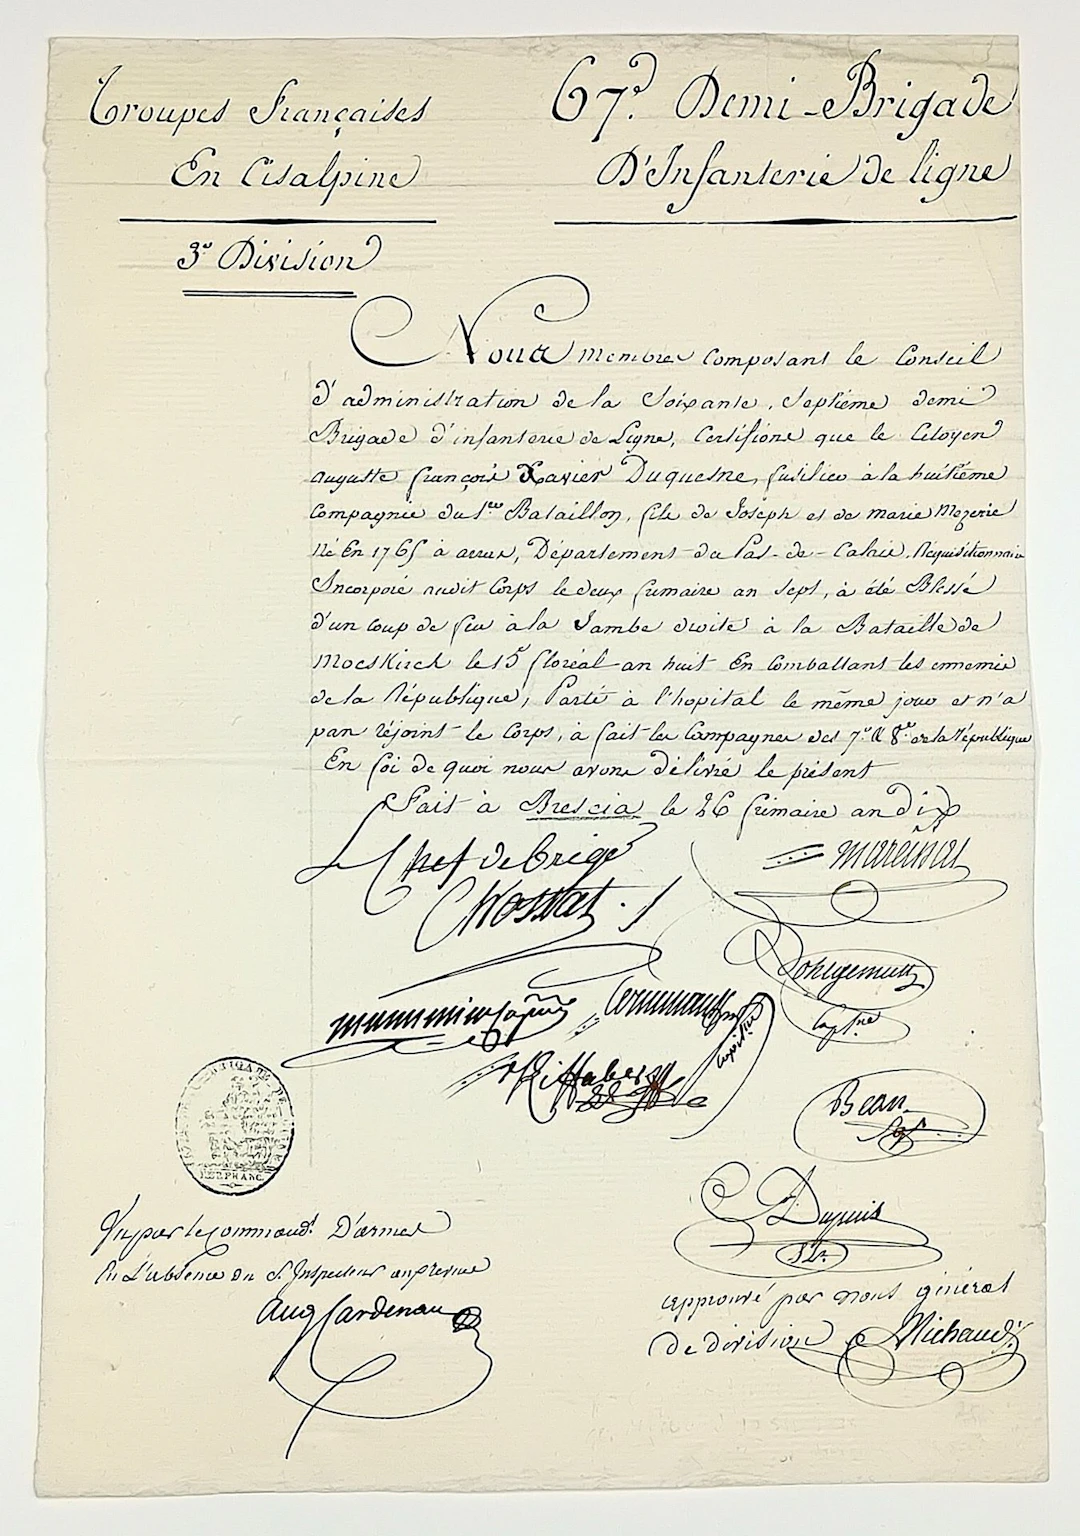 Troupes Françaises
En Cisalpine
3e Division
67e. Demi-Brigade
D'Infanterie de ligne
Nous membres composant le Conseil
d'administration de la Soixante, Septième demi
Brigade d'infanterie de Ligne, Certifions que le Citoyen
auguste françois Xavier Duquesne, fusilier à la huitième
Compagnie du 1er Bataillon, fils de Joseph et de marie
Né En 1765 à arras, Département du Pas-de-Calais, Réquisitionnaire
Incorporé audit Corps le deux frimaire an Sept, à été Blessé
d'un coup de feu à la Jambe droite à la Bataille de
Moeskirch le 15 floréal an huit En combattant les ennemis
de la République, Porté à l'hopital le même jour et n'a
pas réjoint le Corps, à fait les Campagnes des 7e & 8e de la République
En foi de quoi nous avons délivré le présent
Fait à Brescia le 26 frimaire an Dix
Le Chef de brige
Bean
Dupuis
REP. FRANC.
Vu par le Command. D'armes
En L'absence du S. Inspecteur aux revues
Aug Cardenau
approuvé par nous général
de division Michaud